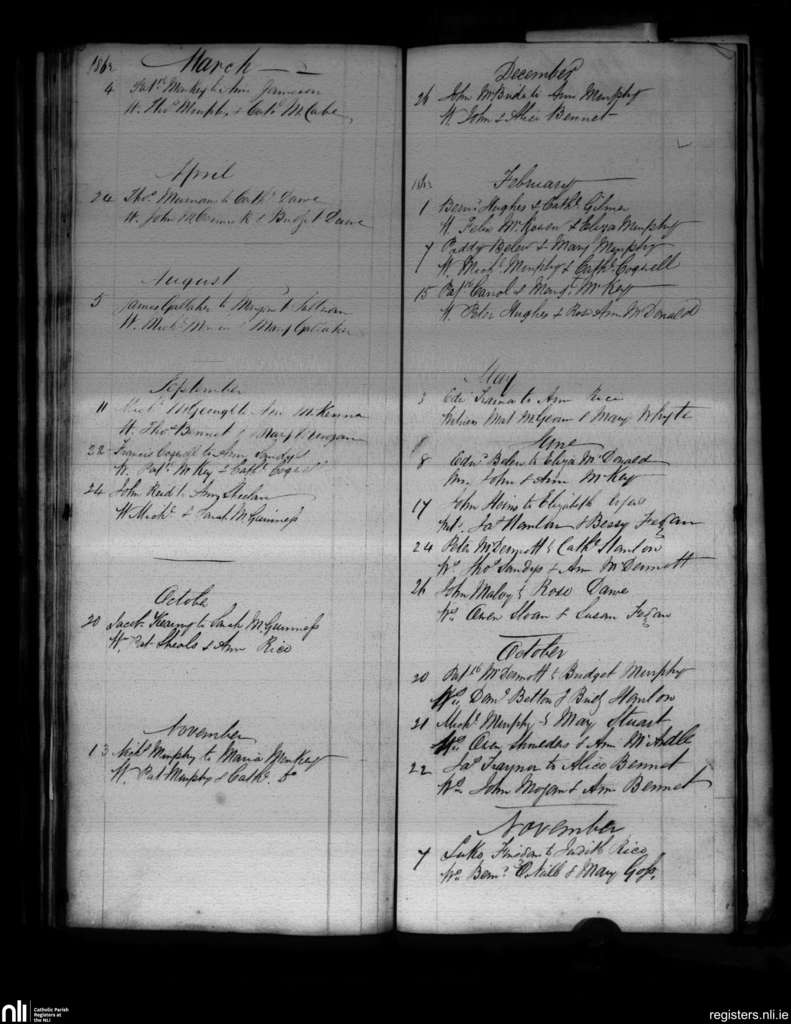 1862 March
4 Patk. McKey to Ann Jameson
W. Thos. Murphy & Cath. McCabe
April
24 Thos. to Cath. Dawe
W. John McCormick & Bridget Dawe
August
5 James Gallaher to Margaret
W. Michl. Mary Gallaher
September
11 Michl. McGeough to Ann McKenna
W. Thos. Bennet & Mary
22 Francis Cogwell to Ann Sandys
W. Patk. McKey & Cath. Cogwell
24 John Reid to Amy Sheelan
W Michl. & Sarah McGuinness
October
20 Jacob Kearny to Sarah McGuinness
W. Pat Sheols & Ann Rice
November
13 Michl. Murphy to Maria McKey
W. Pat Murphy & Cath. Do
December
26 John McBride to Ann Murphy
W. John & Alice Bennet
1863 February
1 Bernd. Hughes & Cath. Gilmer
W. Felix McKeown & Eliza Murphy
7 Paddy Belew & Mary Murphy
W. Michl. Murphy & Cath. Cogwell
15 Patk. Carrol & Margt. McKey
W. Peter Hughes & Rose Ann McDonald
May
3 Edw. Trainor to Ann Rice
Witness Mat McGeown & Mary Whyte
June
8 Edwd. Belew to Eliza McDonald
John & Ann McKey
17 John Heins to Elizabeth
Wit. Jas. Hanlon & Bessy Fegan
24 Peter McDermott & Cath. Hanlon
Ws. Thos. Sandys & Ann McDermott
26 John Maloy & Rose Dawe
Ws. Owen Sloan & Susan Fegan
October
20 Patk. McDermott & Bridget Murphy
Ws. Danl. Betton & Bridt. Hanlon
21 Michl. Murphy & Mary Stuart
Ws. Owen & Ann McArdle
22 Jas. Traynor to Alice Bennet
Ws. John Mogan & Ann Bennet
November
7 Luke Finigan to Judith Rice
Ws. Bernd. O'Neill & Mary Goss.
nli
Catholic Parish
Registers at
the NLI
registers.nli.ie